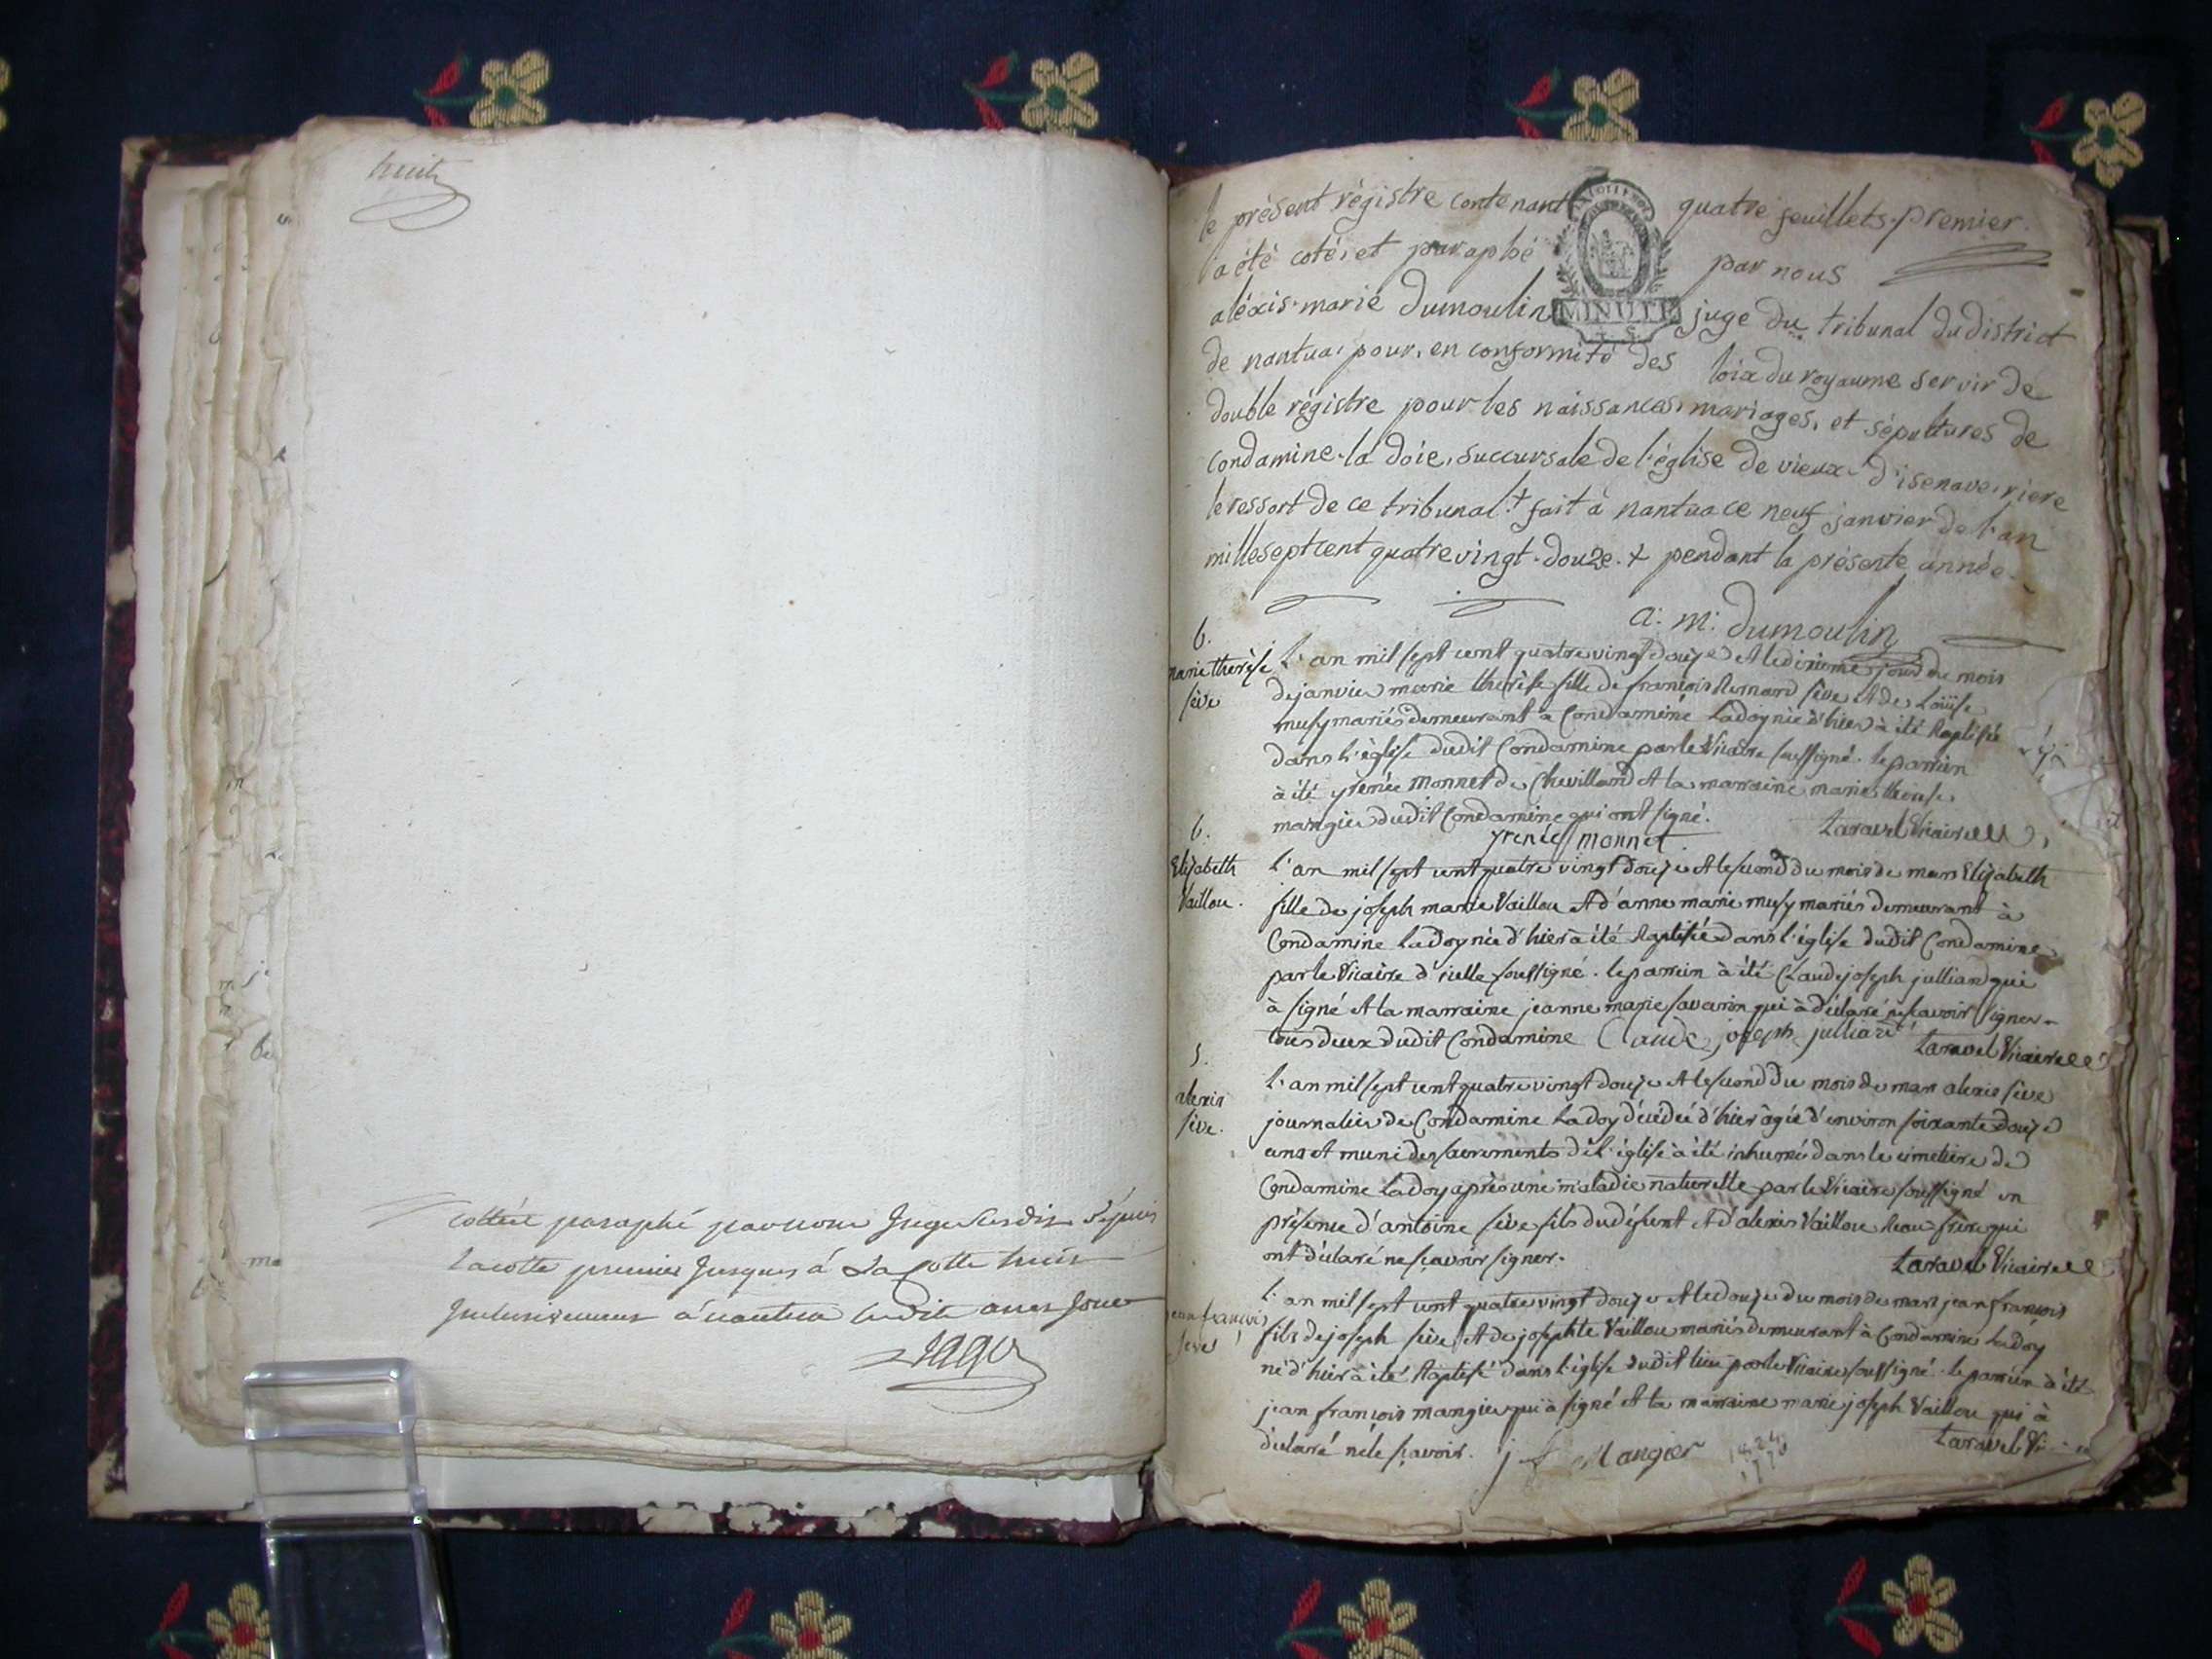 huit
cotté et paraphé par nous Juge susdit depuis
la cotte premier jusques à la cotte huit
inclusivement à nantua ledit
le présent régistre contenant quatre feuillets. premier.
a été coté, et paraphé par nous
aléxis-marie Dumoulin juge du tribunal du district
MINUTE
de nantua, pour, en conformité des loix du royaume servir de
double régistre pour les naissances, mariages, et sépultures de
Condamine-la doie, succursale de l'église de vieux-d'isenave, riere
le ressort de ce tribunal. + fait à nantua ce neuf janvier de l'an
mille sept cent quatre vingt-douze. + pendant la présente année.
a: m: dumoulin
b.
marie therèse
sève
L'an mil sept cent quatre vingt douze et le dixieme jour du mois
de janvier marie therèse fille de françois Bernard sève et de Loüise
musy mariés demeurant à Condamine Ladoy née d'hier à été baptisée
dans l'église dudit Condamine par le Vicaire soussigné. le parrein
à été yrenée monnet de Chevilland et la marraine marie therese
mangier dudit Condamine qui ont signé.
yrenée monnet. Laravel Vicaire
b.
Elizabeth
Vaillou.
L'an mil sept cent quatre vingt douze et le second du mois de mars Elizabeth
fille de joseph marie Vaillou et d'anne marie musy mariés demeurant à
Condamine Ladoy née d'hier à été baptisée dans l'église dudit Condamine
par le Vicaire d'icelle soussigné. le parrein à été Claude joseph julliard qui
à signé et la marraine jeanne marie savarin qui à déclaré ne scavoir signer.
tous deux dudit Condamine Claude joseph julliard Laravel Vicaire
s.
alexis
sève.
L'an mil sept cent quatre vingt douze et le second du mois de mars alexis sève
journalier de Condamine Ladoy décédé d'hier âgé d'environ soixante douze
ans et muni des sacrements de l'église à été inhumé dans le cimetiere de
Condamine Ladoy après une maladie naturelle par le Vicaire soussigné en
présence d'antoine sève fils du défunt et d'alexis Vaillou beau frere qui
ont déclaré ne sçavoir signer.
Laravel Vicaire
jean françois
seve
L'an mil sept cent quatre vingt douze et le douze du mois de mars jean françois
fils de joseph sève et de josephte Vaillou mariés demeurant à Condamine Ladoy
né d'hier à été baptisé dans l'église dudit lieu par le Vicaire soussigné. le parrein à été
jean françois mangier qui à signé et la marraine marie joseph Vaillou qui à
déclaré ne le sçavoir. j f Mangier
Laravel